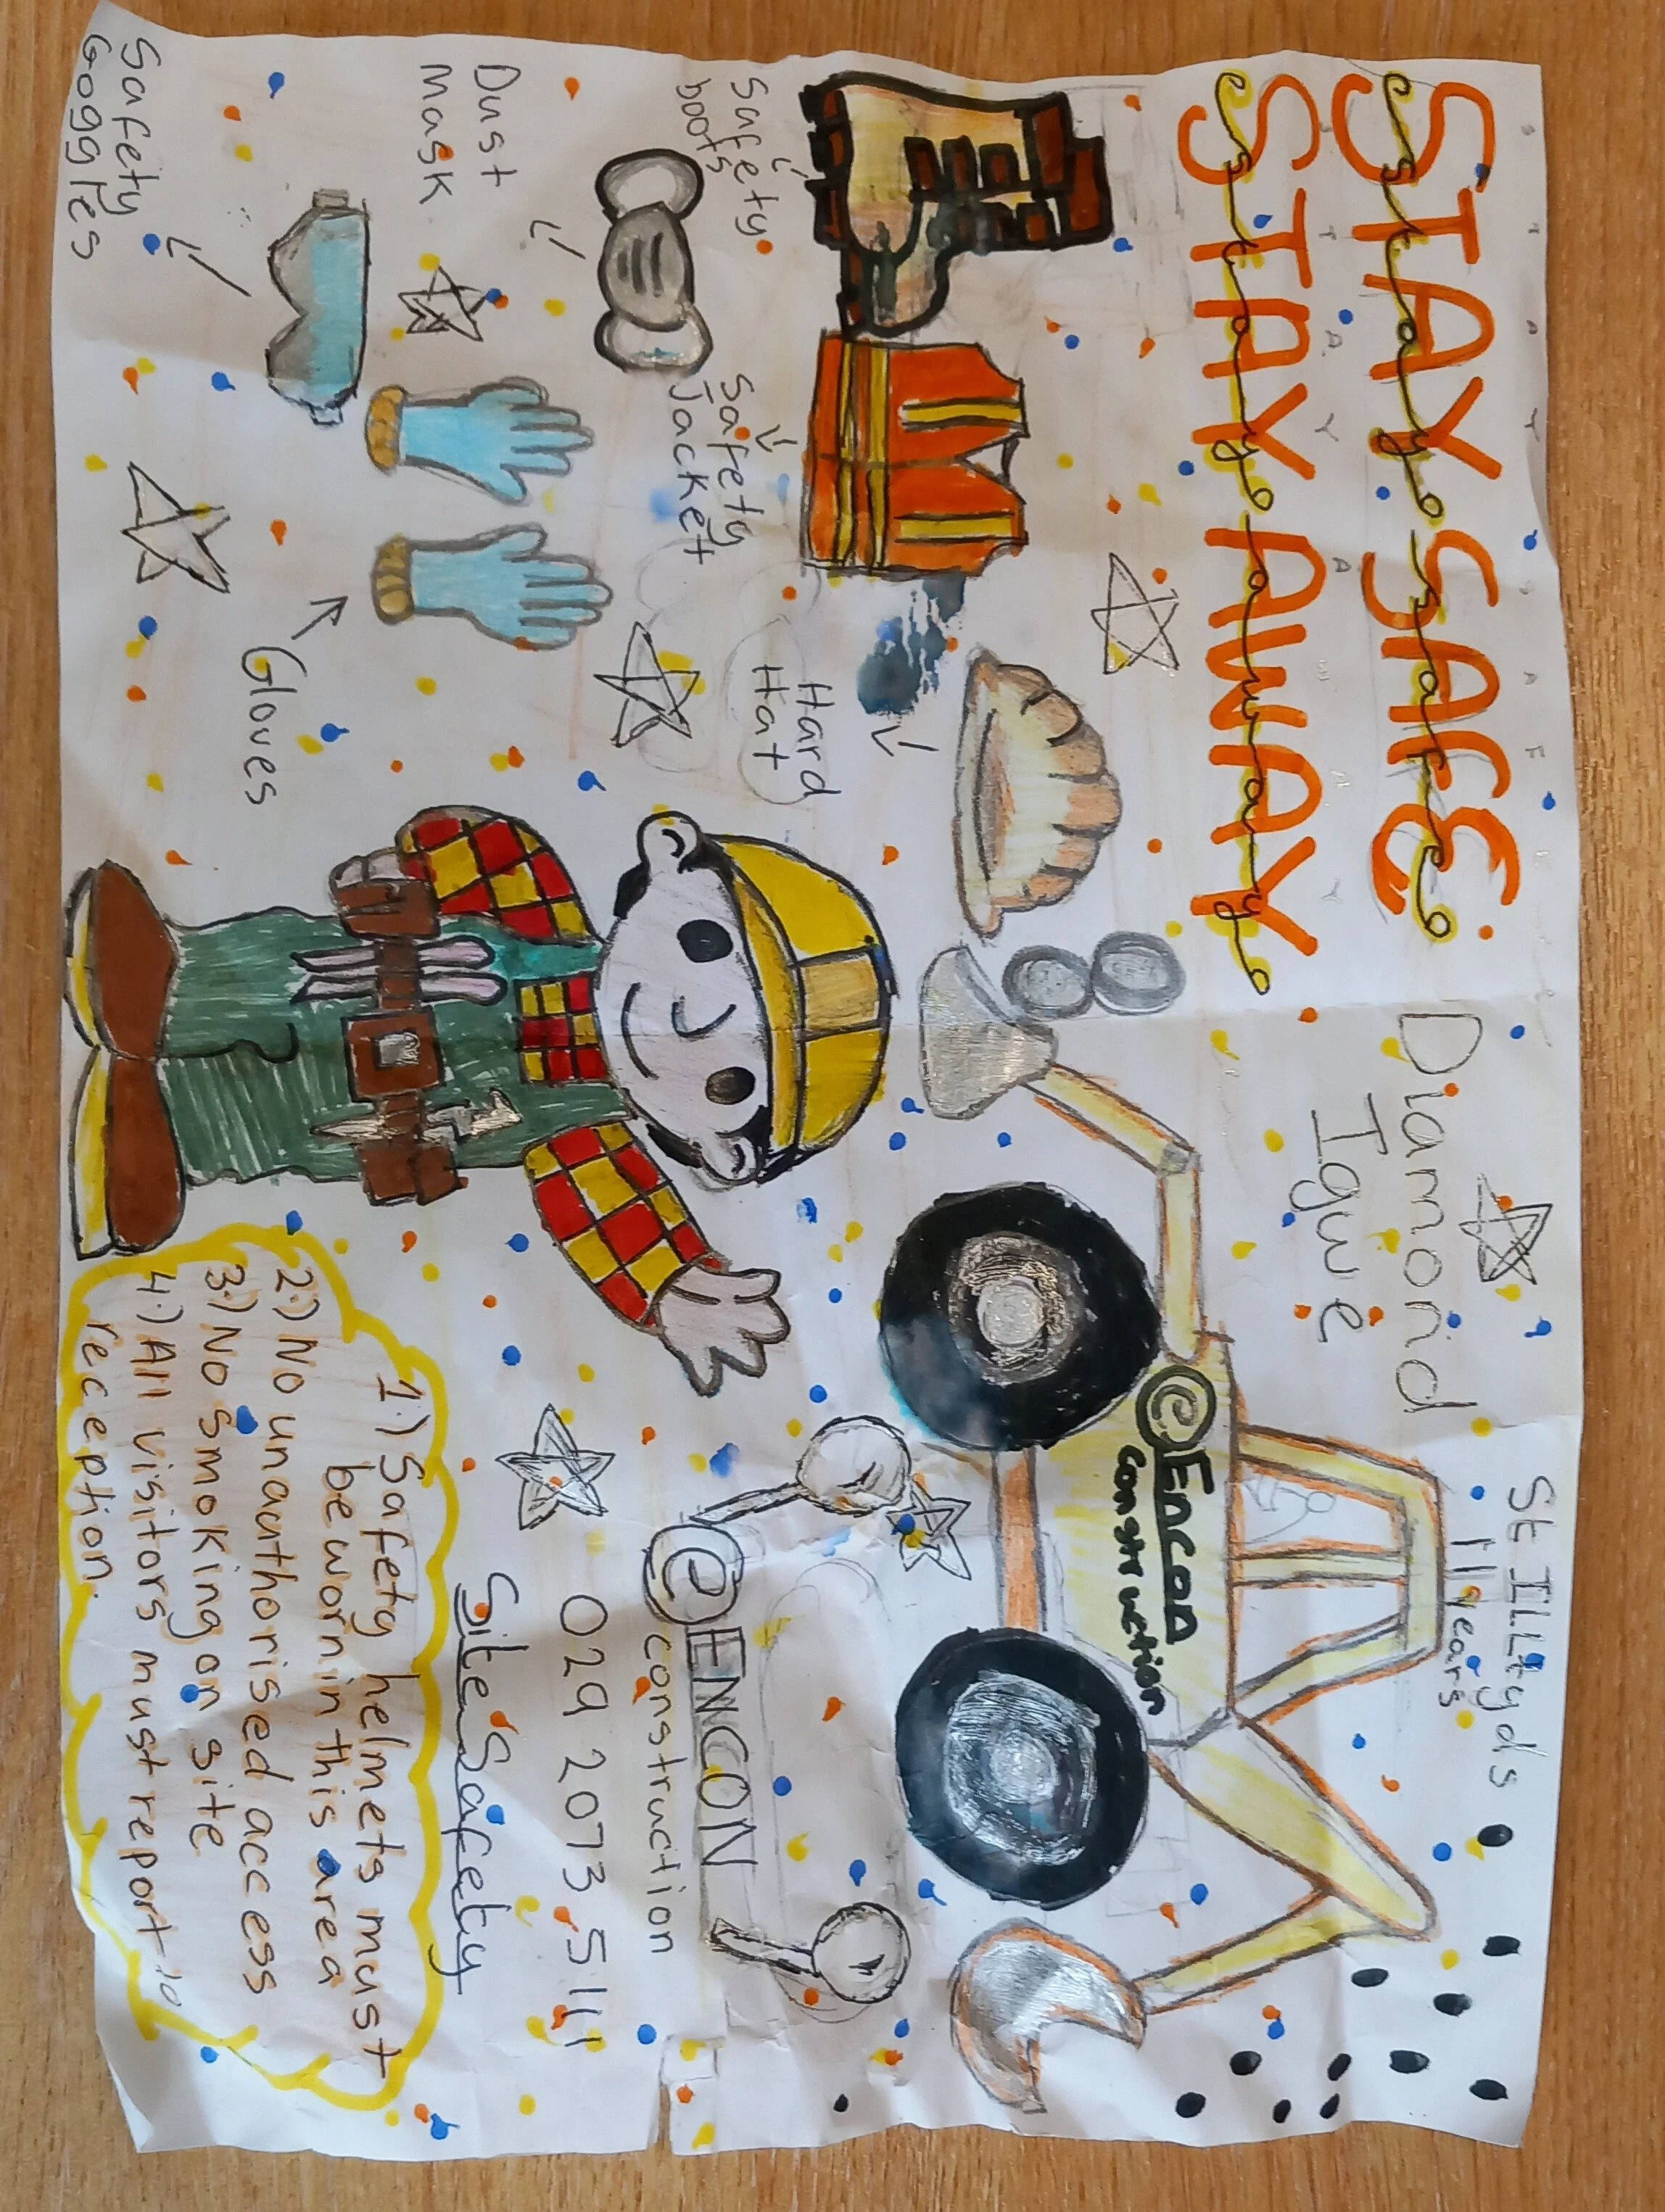 STAY SAFE
Stay Safe
STAY AWAY
Stay away
Diamond
Igwe
St Illtyds
11 years
Safety
boots
Safety
Jacket
Hard
Hat
Dust
Mask
Safety
Goggles
Gloves
@Encon
Construction
@ENCON
construction
029 2073 5111
Site Safety
1.) Safety helmets must
be worn in this area
2.) No unauthorised access
3.) No smoking on site
4.) All visitors must report to
reception.